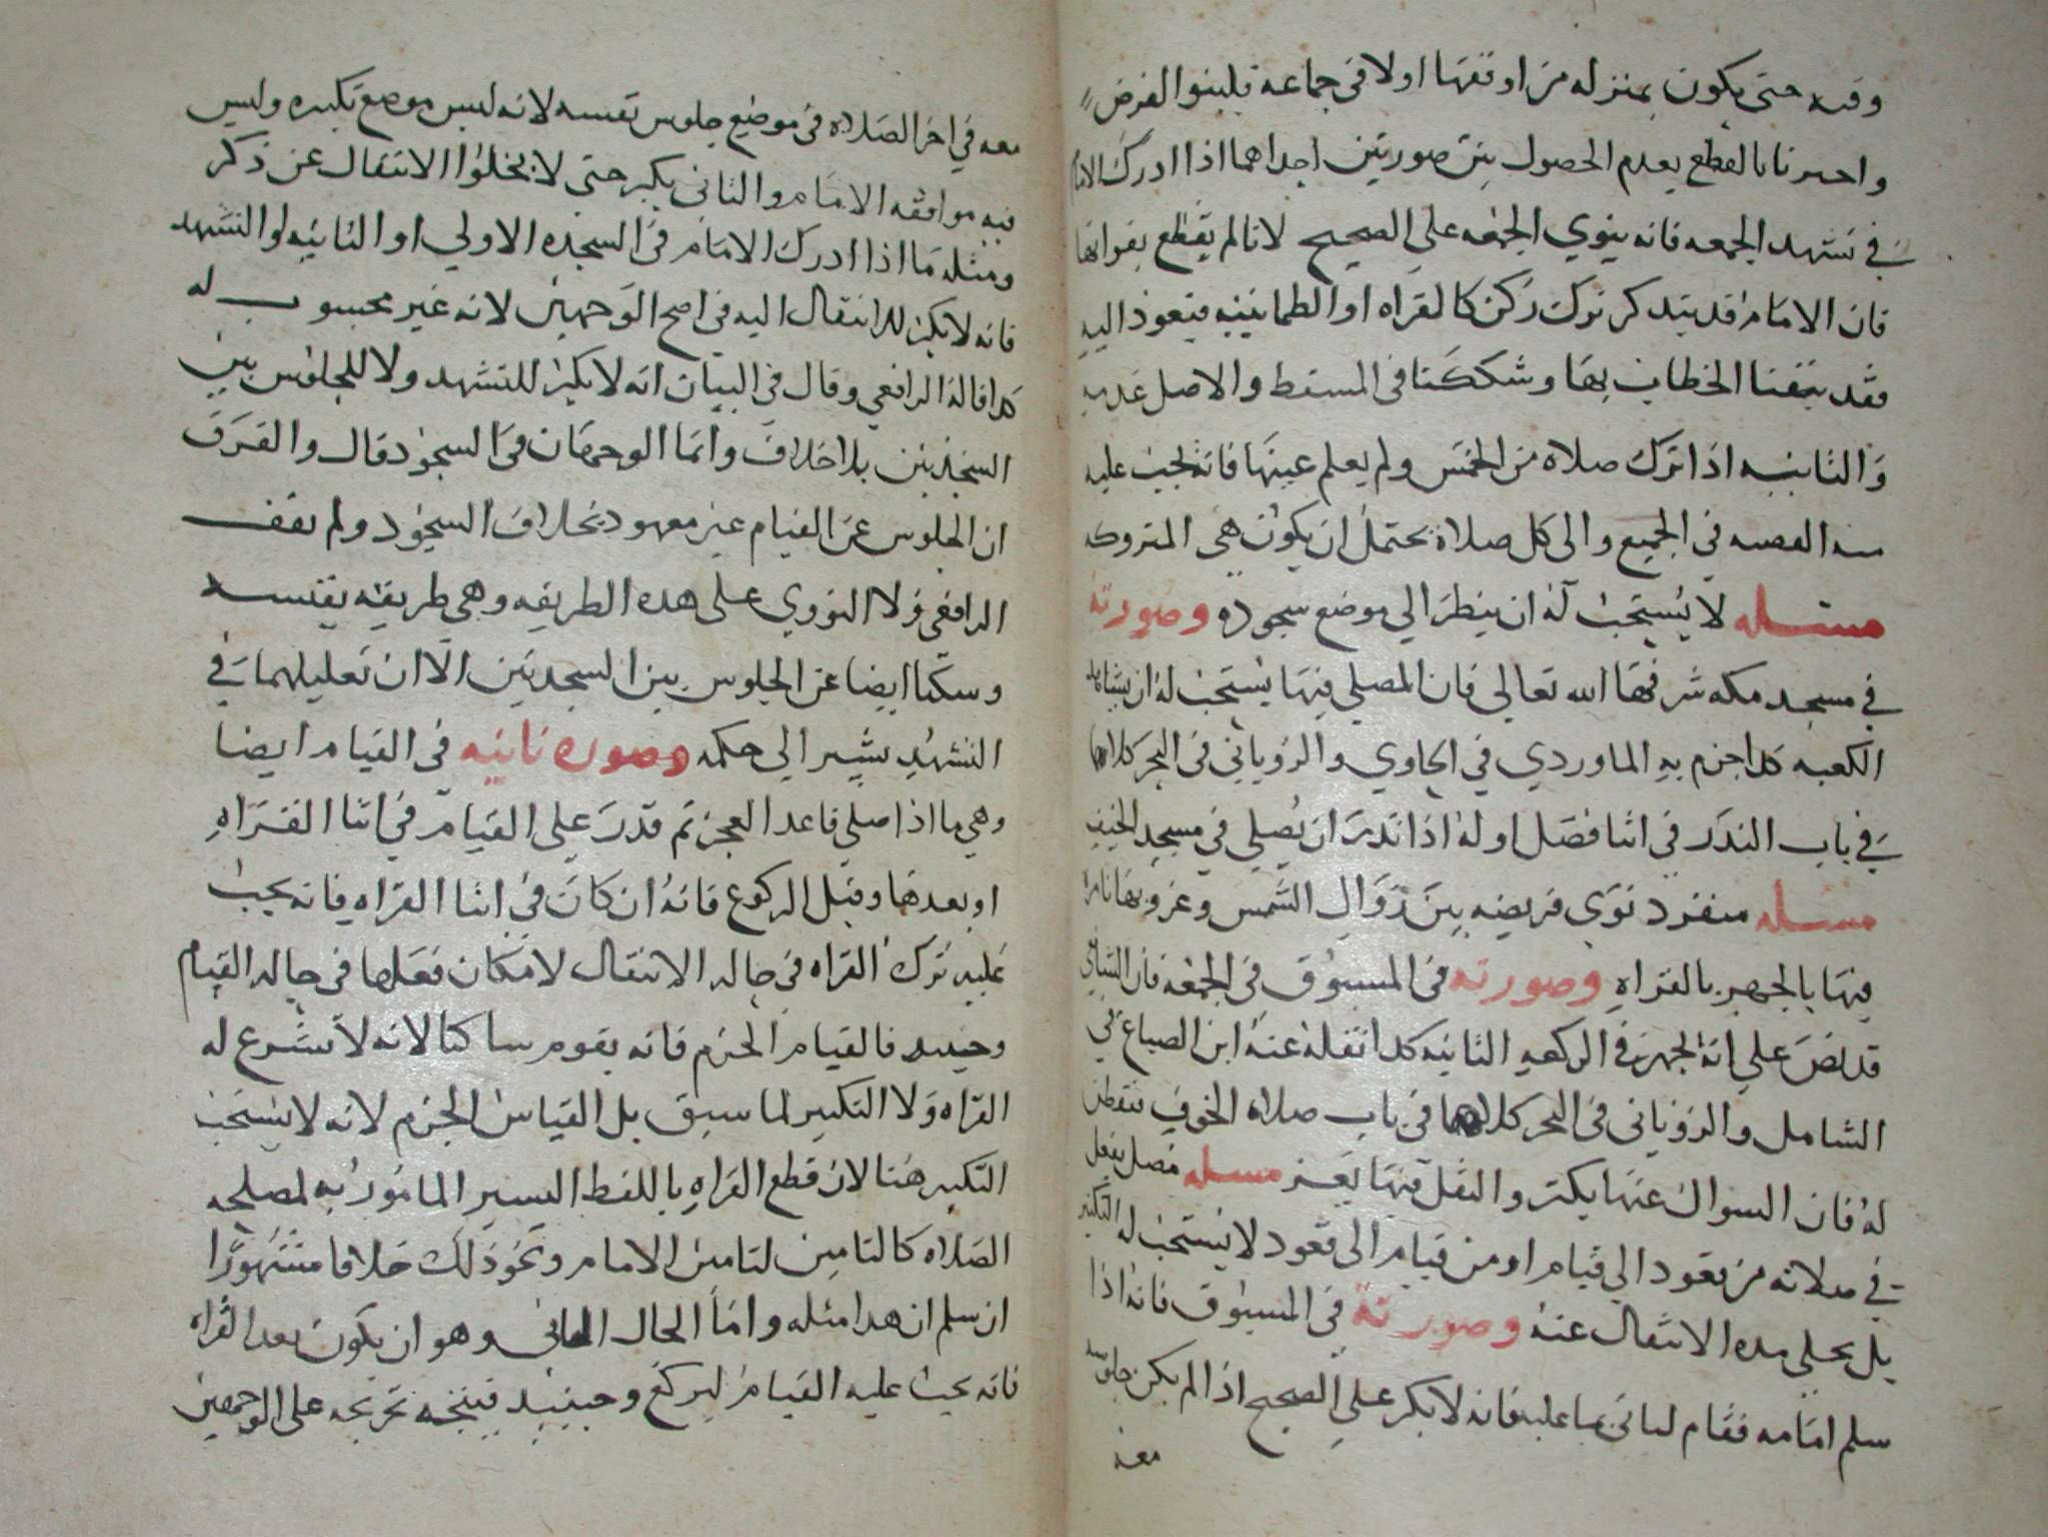 وقته حتى يكون بمنزله من اوقعها اولا في جماعه فلينو الفرض
واحترنا بالقطع بعدم الحصول بين صورتين احداهما اذا ادرك الامام
في تشهد الجمعه فانه ينوي الجمعه على الصحيح لانا لم يقطع بفواتها
فان الامام قد يتذكر ترك ركن كالقراه او الطمانينه فيعود اليه
فقد تيقنا الخطاب بها وشككنا في المسقط والاصل عدمه
والثانيه اذا ترك صلاة من الخمس ولم يعلم عينها فانه يجب عليه
في الجميع والى كل صلاة يحتمل ان يكون هي المتروكه
مسئله لا يستحب له ان ينظر الي موضع سجوده وصورته
في مسجد مكه شرفها الله تعالى فان المصلي فيها يستحب له ان يشاهد
الكعبه كذا جزم به الماوردي في الحاوي والروياني في البحر كلاهما
في باب النذر في اثنا فصل اوله اذا نذر ان يصلي في مسجد الخيف
مسئله منفرد نوى فريضه بين زوال الشمس وغروبها نامرا
فيها بالجهر بالقراه وصورته في المسبوق في الجمعه فان الشافعي
قد نص على انه يجهر في الركعه الثانيه كذا نقله عنه ابن الصباغ في
الشامل والروياني في البحر كلاهما في باب صلاه الخوف فتفطن
له فان السوال عنها يكثر والنقل فيها يعز مسئله مصل ينتقل
في صلاته من قعود الي قيام او من قيام الى قعود لا يستحب له التكبير
بل يخلي مده الانتقال عنه وصورته في المسبوق فانه اذا
سلم امامه فقام لياتي بما عليه فانه لا يكبر على الصحيح اذا لم يكن جلوسه
معه
معه في اخر الصلاه في موضع جلوس نفسه لانه ليس موضع تكبيره وليس
فيه موافقه الامام والثاني يكبر حتى لا يخلوا الانتقال عن ذكر
ومثله ما اذا ادرك الامام في السجده الاولي او الثانيه او التشهد
فانه لا يكبر للانتقال اليه في اصح الوجهين لانه غير محسوب له
كذا قاله الرافعي وقال في البيان انه لا يكبر للتشهد ولا للجلوس بين
السجدتين بلا خلاف وانما الوجهان في السجود قال والفرق
ان الجلوس عن القيام غير معهود بخلاف السجود ولم يقف
الرافعي ولا النووي على هذه الطريقه وهي طريقه نفيسه
وسكتا ايضا عن الجلوس بين السجدتين الا ان تعليلهما في
التشهد يشير الى حكمه وصوره ثانيه في القيام ايضا
وهي ما اذا صلى قاعدا لعجز ثم قدر على القيام في اثنا القراه
او بعدها وقبل الركوع فانه ان كان في اثنا القراه فانه يجب
عليه ترك القراه في حاله الانتقال لامكان فعلها في حاله القيام
وحينيد فالقيام الجزم فانه يقوم ساكتا لانه لا يشرع له
القراه ولا التكبير لما سبق بل القياس الجزم لانه لا يستحب
التكبير هنا لان قطع القراه باللفظ اليسير المامور به لمصلحه
الصلاه كالتامين لتامين الامام ونحو ذلك خلافا مشهورا
ان سلم ان هذا مثله واما الحال الثاني وهو ان يكون بعد القراه
فانه يجب عليه القيام ليركع وحينيد فيتجه تخريجه على الوجهين